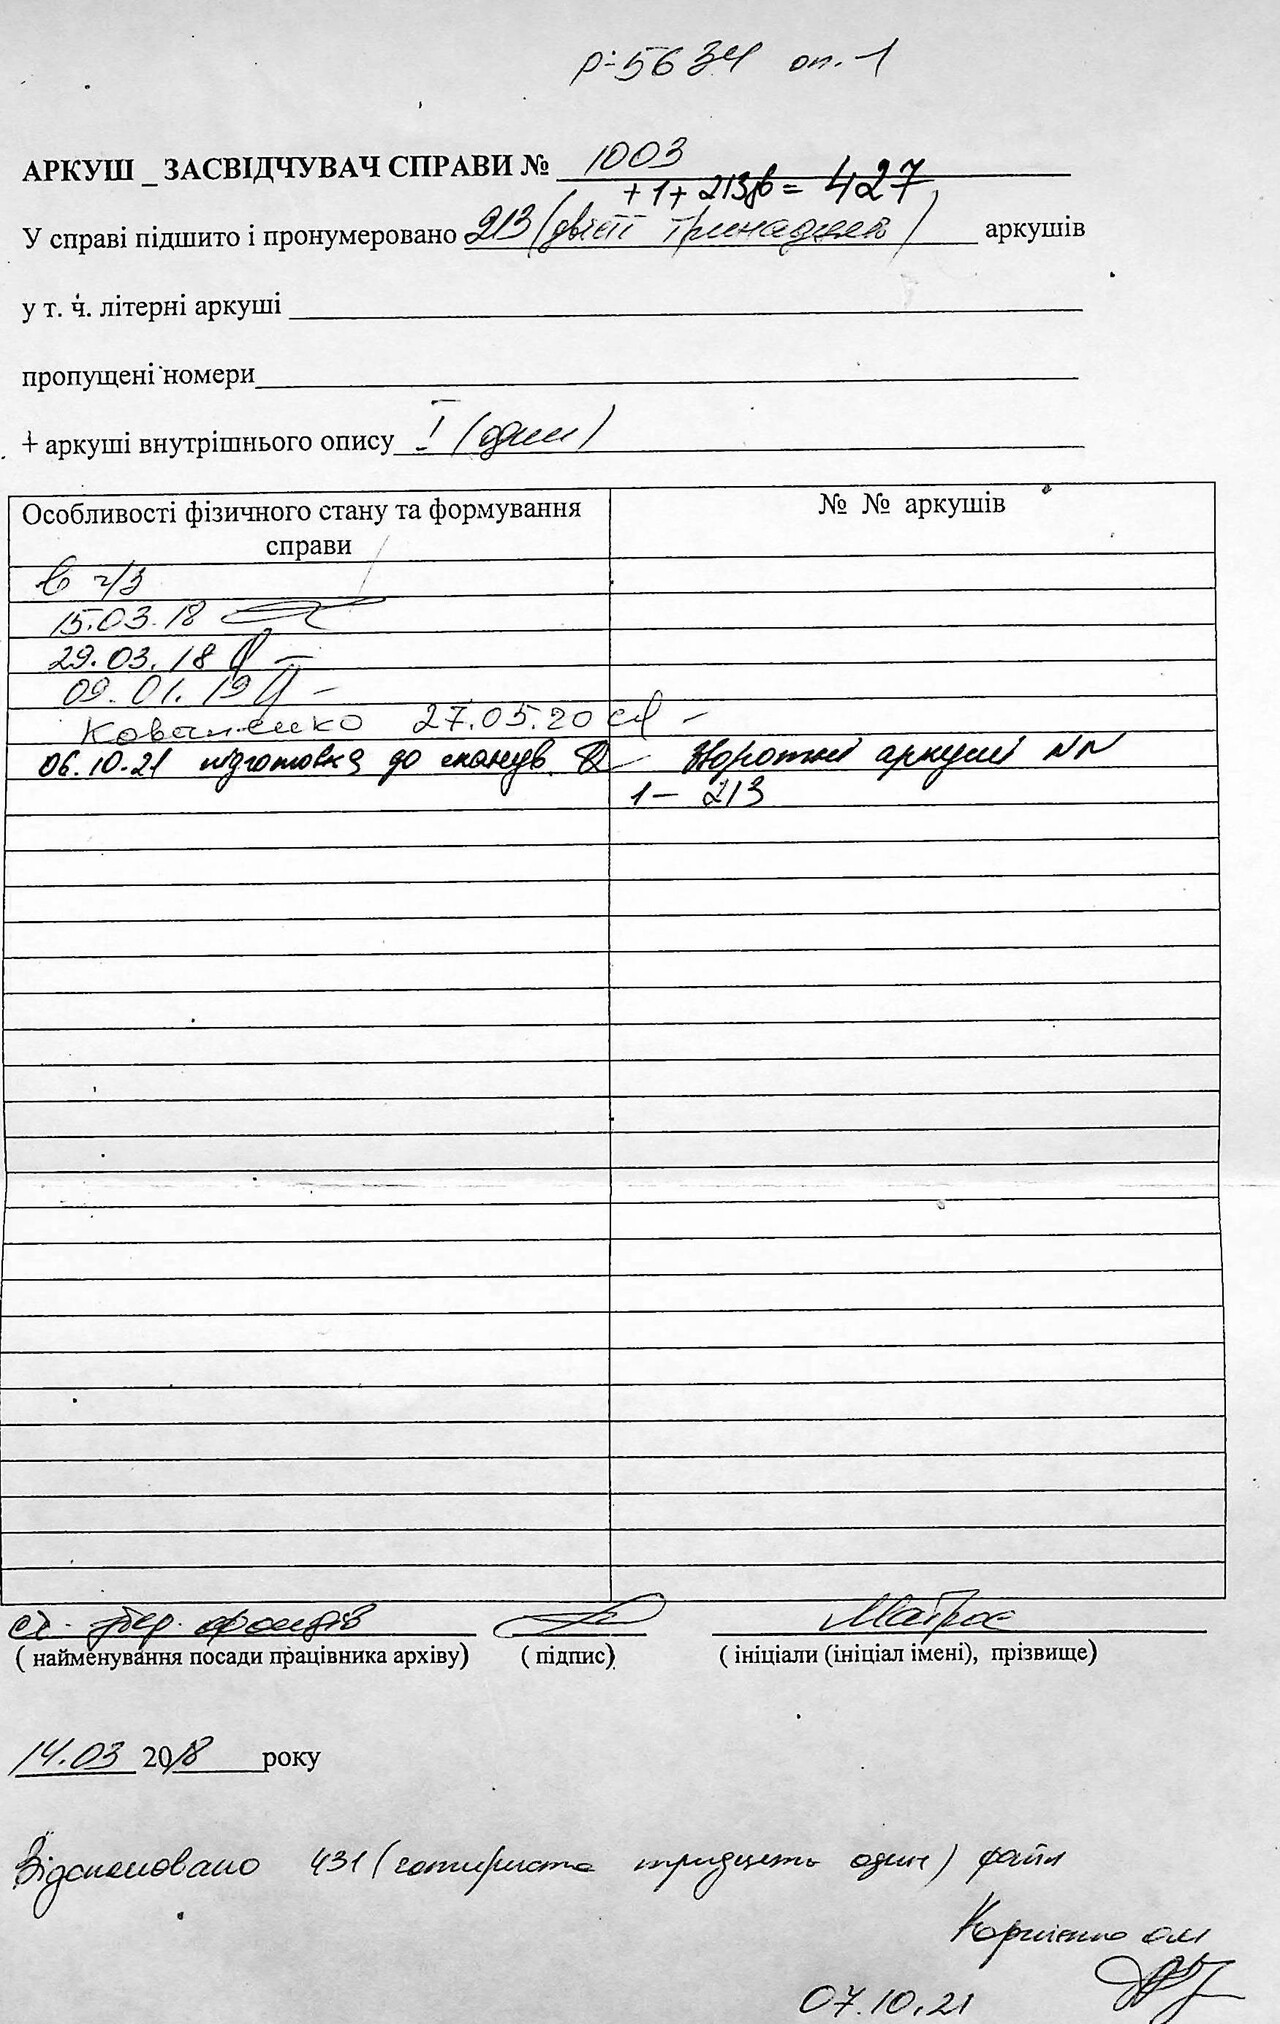 Р-5634 оп. 1
АРКУШ _ ЗАСВІДЧУВАЧ СПРАВИ № 1003
+ 1 + 213зв = 427
У справі підшито і пронумеровано 213 (двісті тринадцять) аркушів
у т. ч. літерні аркуші
пропущені номери
+ аркуші внутрішнього опису 1 (один)
Особливості фізичного стану та формування справи № № аркушів
в ч/з
15.03.18
29.03.18
09.01.19
27.05.20
06.10.21 підготовка до сканув. Зворотні аркуші NN
1 – 213
ст. збер. фондів Матрос
( найменування посади працівника архіву) ( підпис) ( ініціали (ініціал імені), прізвище)
14.03 2018 року
Відскановано 431 (чотириста тридцять один) файл
Корнієнко ОМ
07.10.21